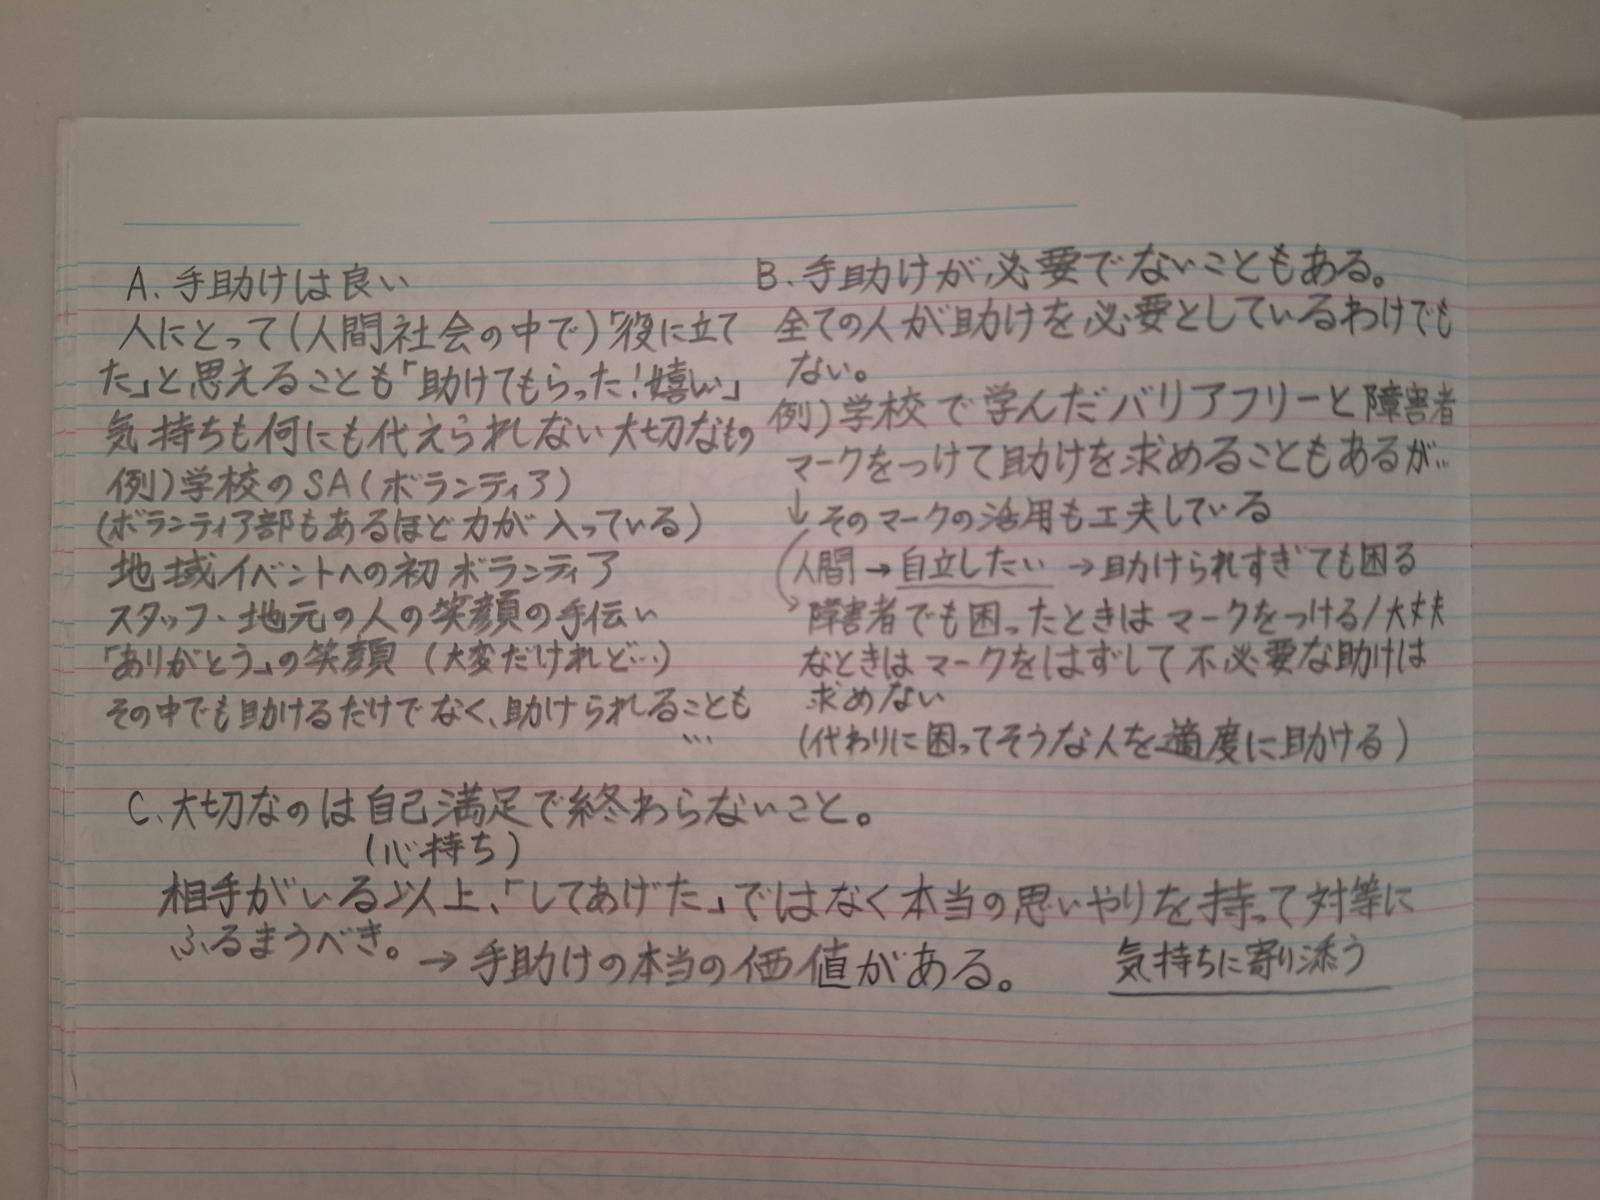 A. 手助けは良い
人にとって(人間社会の中で)「役に立て
た」と思えることも「助けてもらった!嬉しい」
気持ちも何にも代えられしない大切なもの
例)学校のSA(ボランティア)
(ボランティア部もあるほど力が入っている)
地域イベントへの初ボランティア
スタッフ・地元の人の笑顔の手伝い
「ありがとう」の笑顔(大変だけれど…)
その中でも助けるだけでなく、助けられることも
…
B. 手助けが必要でないこともある。
全ての人が助けを必要としているわけでも
ない。
例)学校で学んだバリアフリーと障害者
マークをつけて助けを求めることもあるが…
↓そのマークの活用も工夫している
人間→自立したい→助けられすぎても困る
障害者でも困ったときはマークをつける/大丈夫
なときはマークをはずして不必要な助けは
求めない
(代わりに困ってそうな人を適度に助ける)
C. 大切なのは自己満足で終わらないこと。
(心持ち)
相手がいる以上、「してあげた」ではなく本当の思いやりを持って対等に
ふるまうべき。→手助けの本当の価値がある。 気持ちに寄り添う